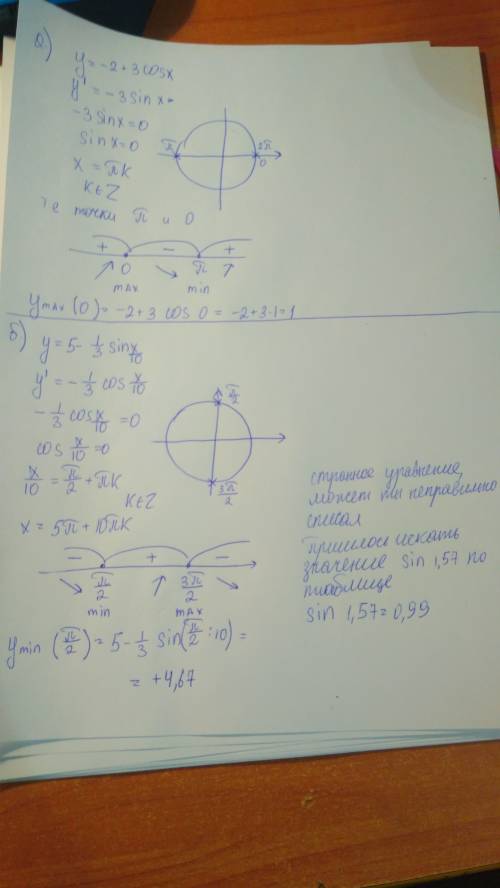 а)
y = -2 + 3 cos x
y' = -3 sin x =
-3 sin x = 0
sin x = 0
x = πk
k∈Z
π
2π
0
те точки π и 0
+ - +
0 π
max min
y max (0) = -2 + 3 cos 0 = -2 + 3·1 = 1
б)
y = 5 - 1/3 sin x/10
y' = -1/3 cos x/10
-1/3 cos x/10 = 0
cos x/10 = 0
x/10 = π/2 + πk
k∈Z
x = 5π + 10πk
π/2
3π/2
- + -
π/2 3π/2
min max
y min (π/2) = 5 - 1/3 sin(π/2 : 10) =
= +4,67
странное уравнение,
может ты неправильно
списал
пришлось искать
значение sin 1,57 по
таблице
sin 1,57 = 0,99